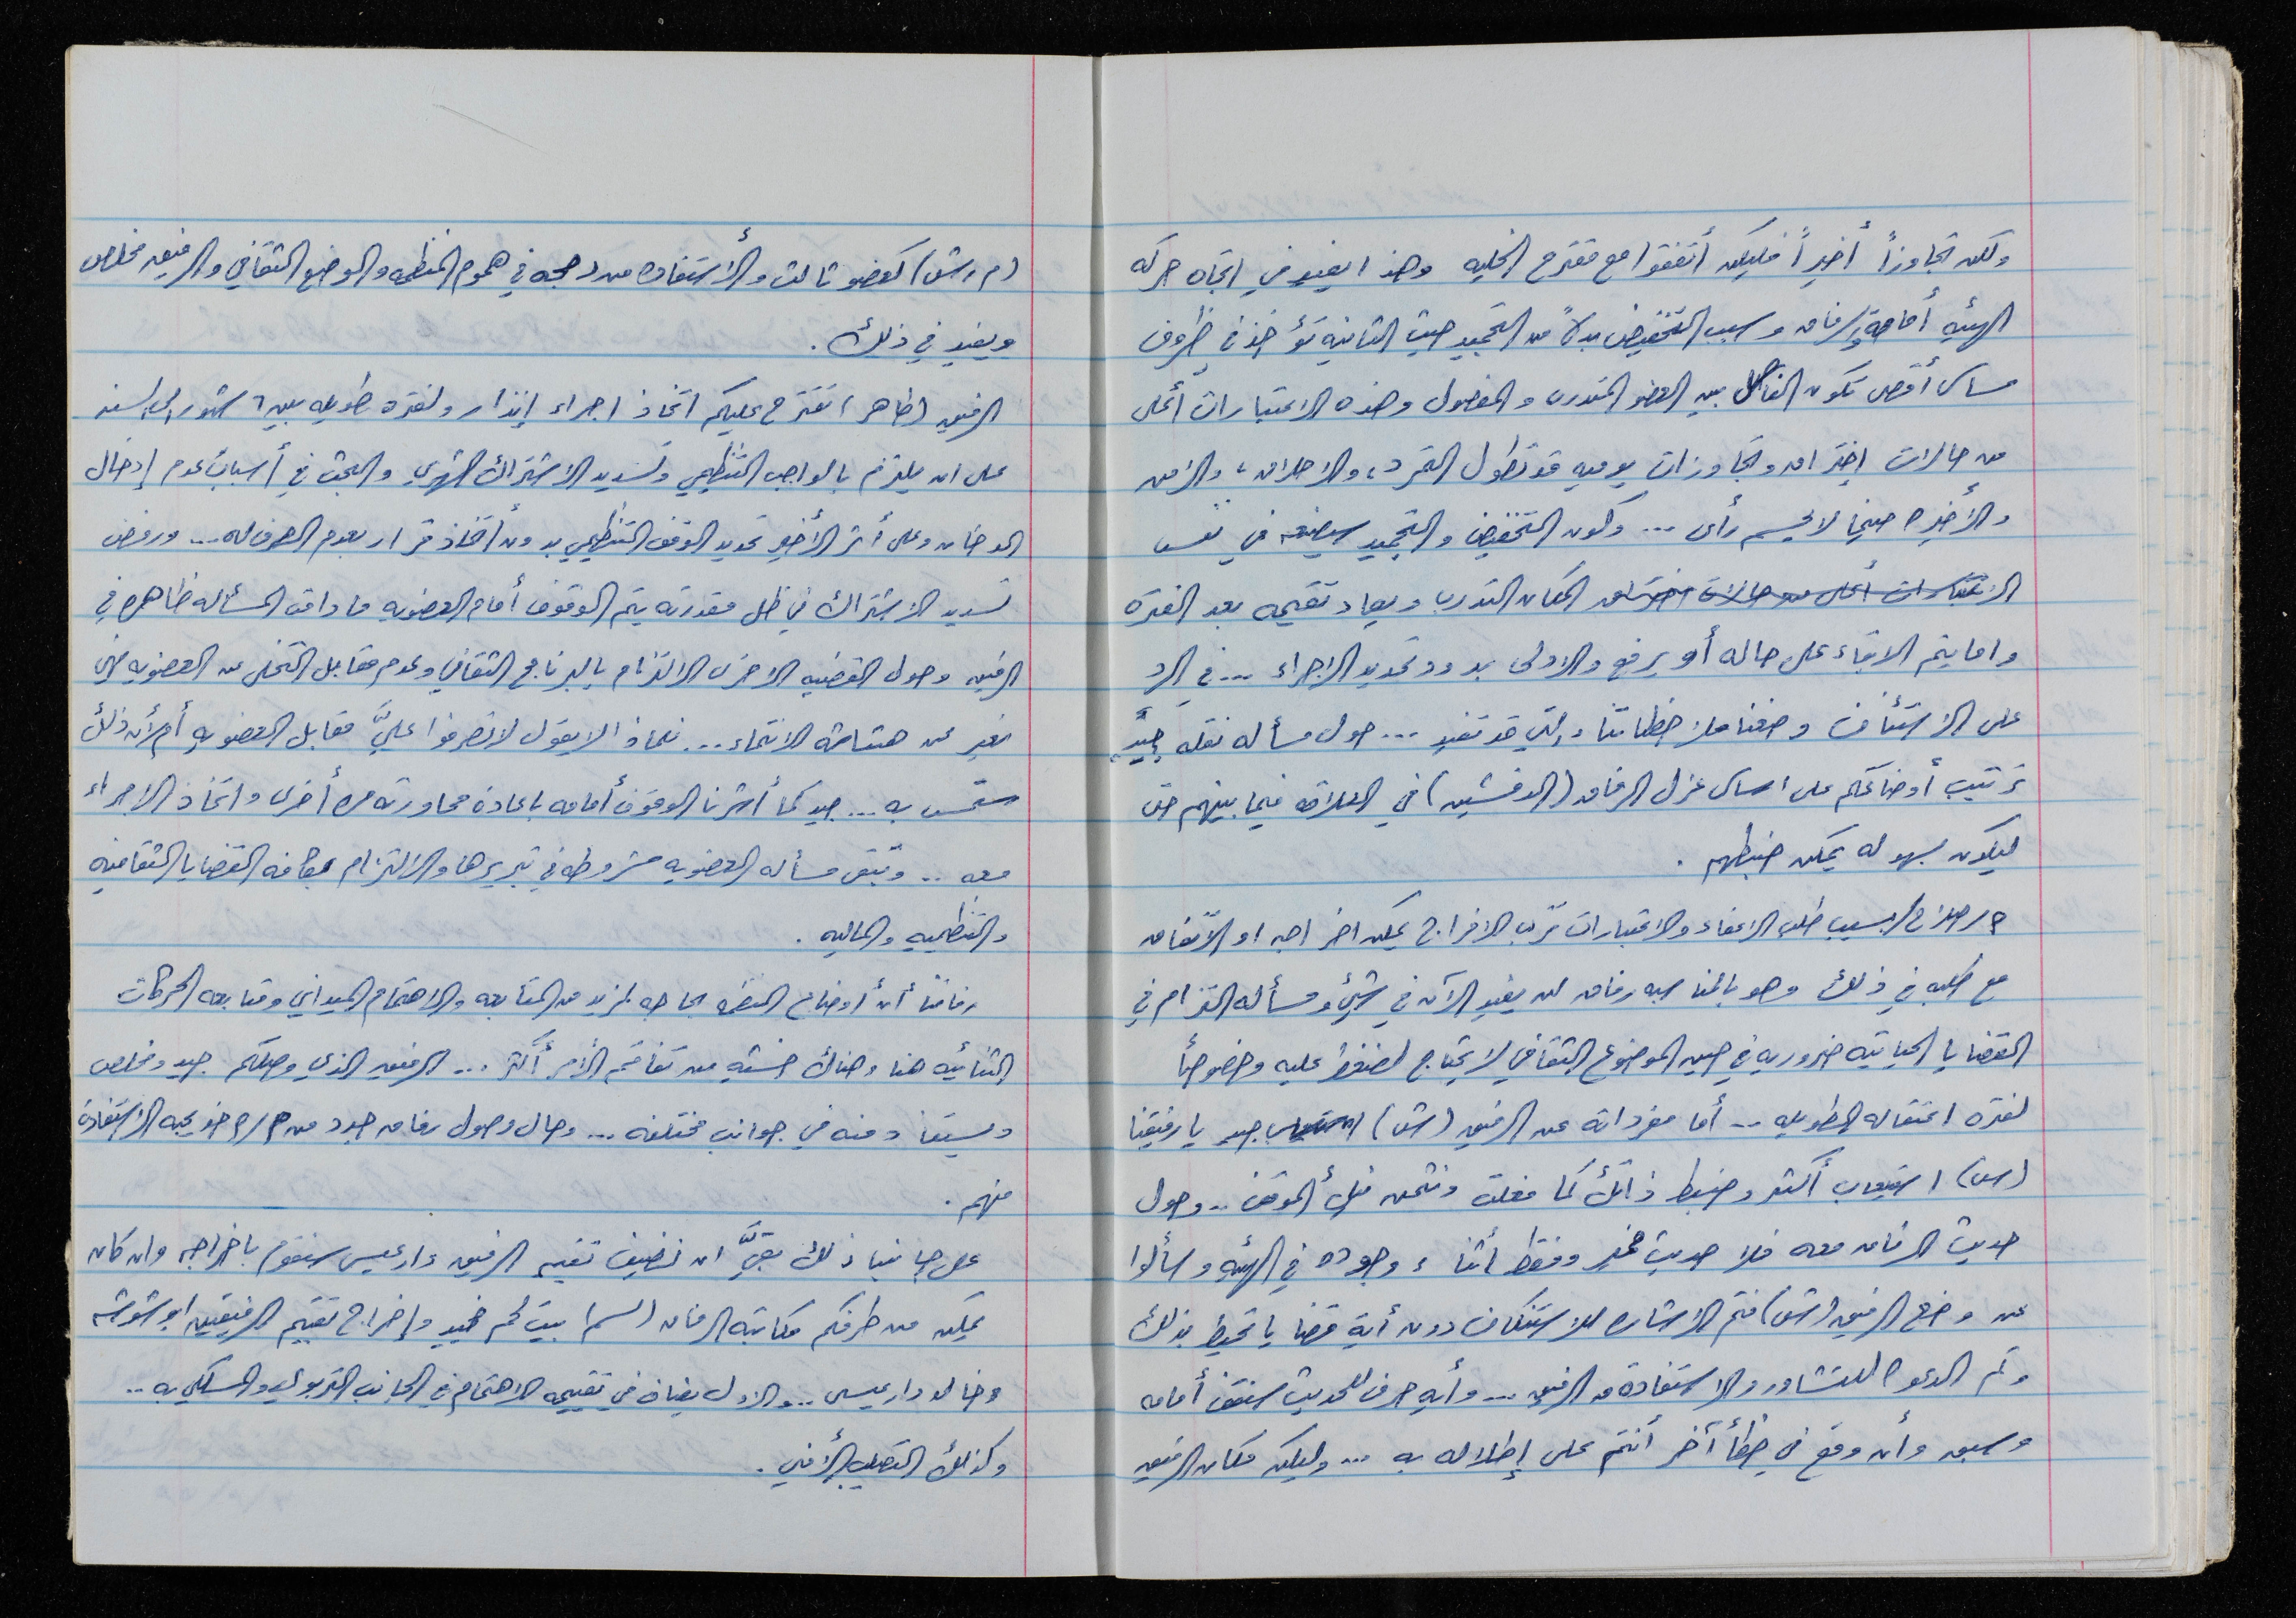 ولكن تجاوزاً أخيراً فليكن أتفقوا مع مقترح الخليه وهذا يفيد في اتجاه حركه
الهيئه أمامه والرفاق وسبب التخفيض بدلاً من التجميد حيث الثانيه تؤخذ في ظروف
مسائل أقصى لكون الفاصل بين العضو المتدرب والمفصول وهذه الاعتبارات أعلى
من حالات إختراق وتجاوزات يوميه قد تطول التمرد، والاحلاق، والزمن
والأخيره حينها لا يحسم رأى ... ولكون التخفيض والتجميد سيضعه في نفس
المكان التدرب ويعاد تقييمه بعد الفتره
واما يتم الابقاء على حاله أو يرفع والاولى بدون تحديد الاجراء ... في الرد
على الاستئناف وضعنا ملاحظاتنا والتي قد تفيد ... حول مسأله نقله جيِّد
ترتيب أوضاعكم على اساس عزل الرفاق (الدفشين) في العلاقه فيما بينهم حتى
ليكون بسهوله يمكن ضبطهم .
م/صلاح/بسبب طلب الاعفاء والاعتبارات قرب الافراج يمكن اخراجه او الأتفاق
مع طلبه في ذلك وهو بالمناسبه رفاق لن يفيد الآن في شيئ ومسأله التزام في
القضايا الحياتيه ضروريه في حين الموضوع الثقافي لا يحتاج لضغط عليه وخصوصاً
لفتره اعتقاله الطويله .. أما مفرداته عن الرفيق (ش) جيد يا رفيقنا
(س) استيعاب أكثر وضبط ذاتك كما فعلت ونثمن تلك الموقف .. وحول
حديث الرفاق معه فلا حديث غير وفقط أثناء وجوده في الهيئه وسألوا
عن وضع الرفيق (ش) فتم الاشاره للاستنكاف دون أية قضايا تحيط بذلك
وتم الدعوه للتشاور والاستفادة من الرفيق ... وأيه حرف للحديث سنقف أمامه
وسبق وأن وقع في خطأ آخر أنتم على إطلاله به ... وليكن مكان الرفيق
(م رش) كعضو ثالث والأستفاده من دمجه في هموم المنظمه والوضع الثقافي والرفيق مخلص
ويفيد في ذلك .
الرفيق (طاهر) نقترح عليكم اتخاذ اجراء إنذار ولفتره طويله بين ٦ شهور الى سنه
على ان يلتزم بالواجب التنظيمي وتسديد الاشتراك الشهري والبحث في أسباب عدم إدخال
الدخان وعلى أثر الأخير تحديد الوقف التنظيمي بدون أتخاذ قرار بعدم الصرف له ... ورفض
تسديد الاشتراك في ظل مقدرته يتم الوقوف أمام العضويه ما دامت المسأله ظاهره في
الرفيق وحول القضيه الاخرى الالتزام بالبرنامج الثقافي وعدم مقابل التخلى عن العضويه فهى
تعبر عن هشاشة الانتماء ... لماذا لا يقول لا تصرفوا عليَّ مقابل العضويه أم أن ذلك
ستمس به ... جيد كما أشرنا الوقوف أمامه باعادة محاورته مره أخرى واتخاذ الاجراء
معه .. وتبقى مسأله العضويه مشروطه في تبريرها والالتزام بكافه القضايا الثقافيه
والتنظيميه والماليه .
رفاقنا أن أوضاع المنظمه بحاجه لمزيد من المتابعه والاهتمام الميداني ومتابعه الحركات
الثنائيه هنا وهناك خشيه من تفاقم الأمر أكثر ... الرفيق الذي وصلكم جيد ومخلص
ويستفاد منه في جوانب مختلفه ... وحال وصول رفاق جدد من م/ه/خو يجب الاستفادة
منهم .
على جانبنا ذلك بقيَّ ان نضيف تقييم الرفيق دار عيسى سنقوم باخراجه وان كان
يمكن من طرفكم مكاتبة الرفاق (لسم) بيت لحم فجيد وإخراج تقييم الرفيقين ابو شوشه
وخالد دار عيسى ... والاول يضاف في تقييمه الاهتمام في الجانب التربوي والمسلكي به ..
وكذلك التصليب الأمني .